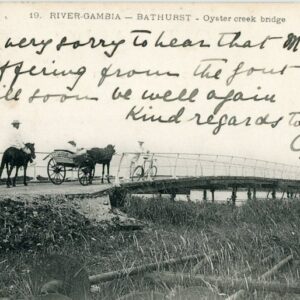 19. RIVER-GAMBIA — BATHURST - Oyster creek bridge
very sorry to hear that M
ffering from the gout
ill soon be well again
Kind regards to